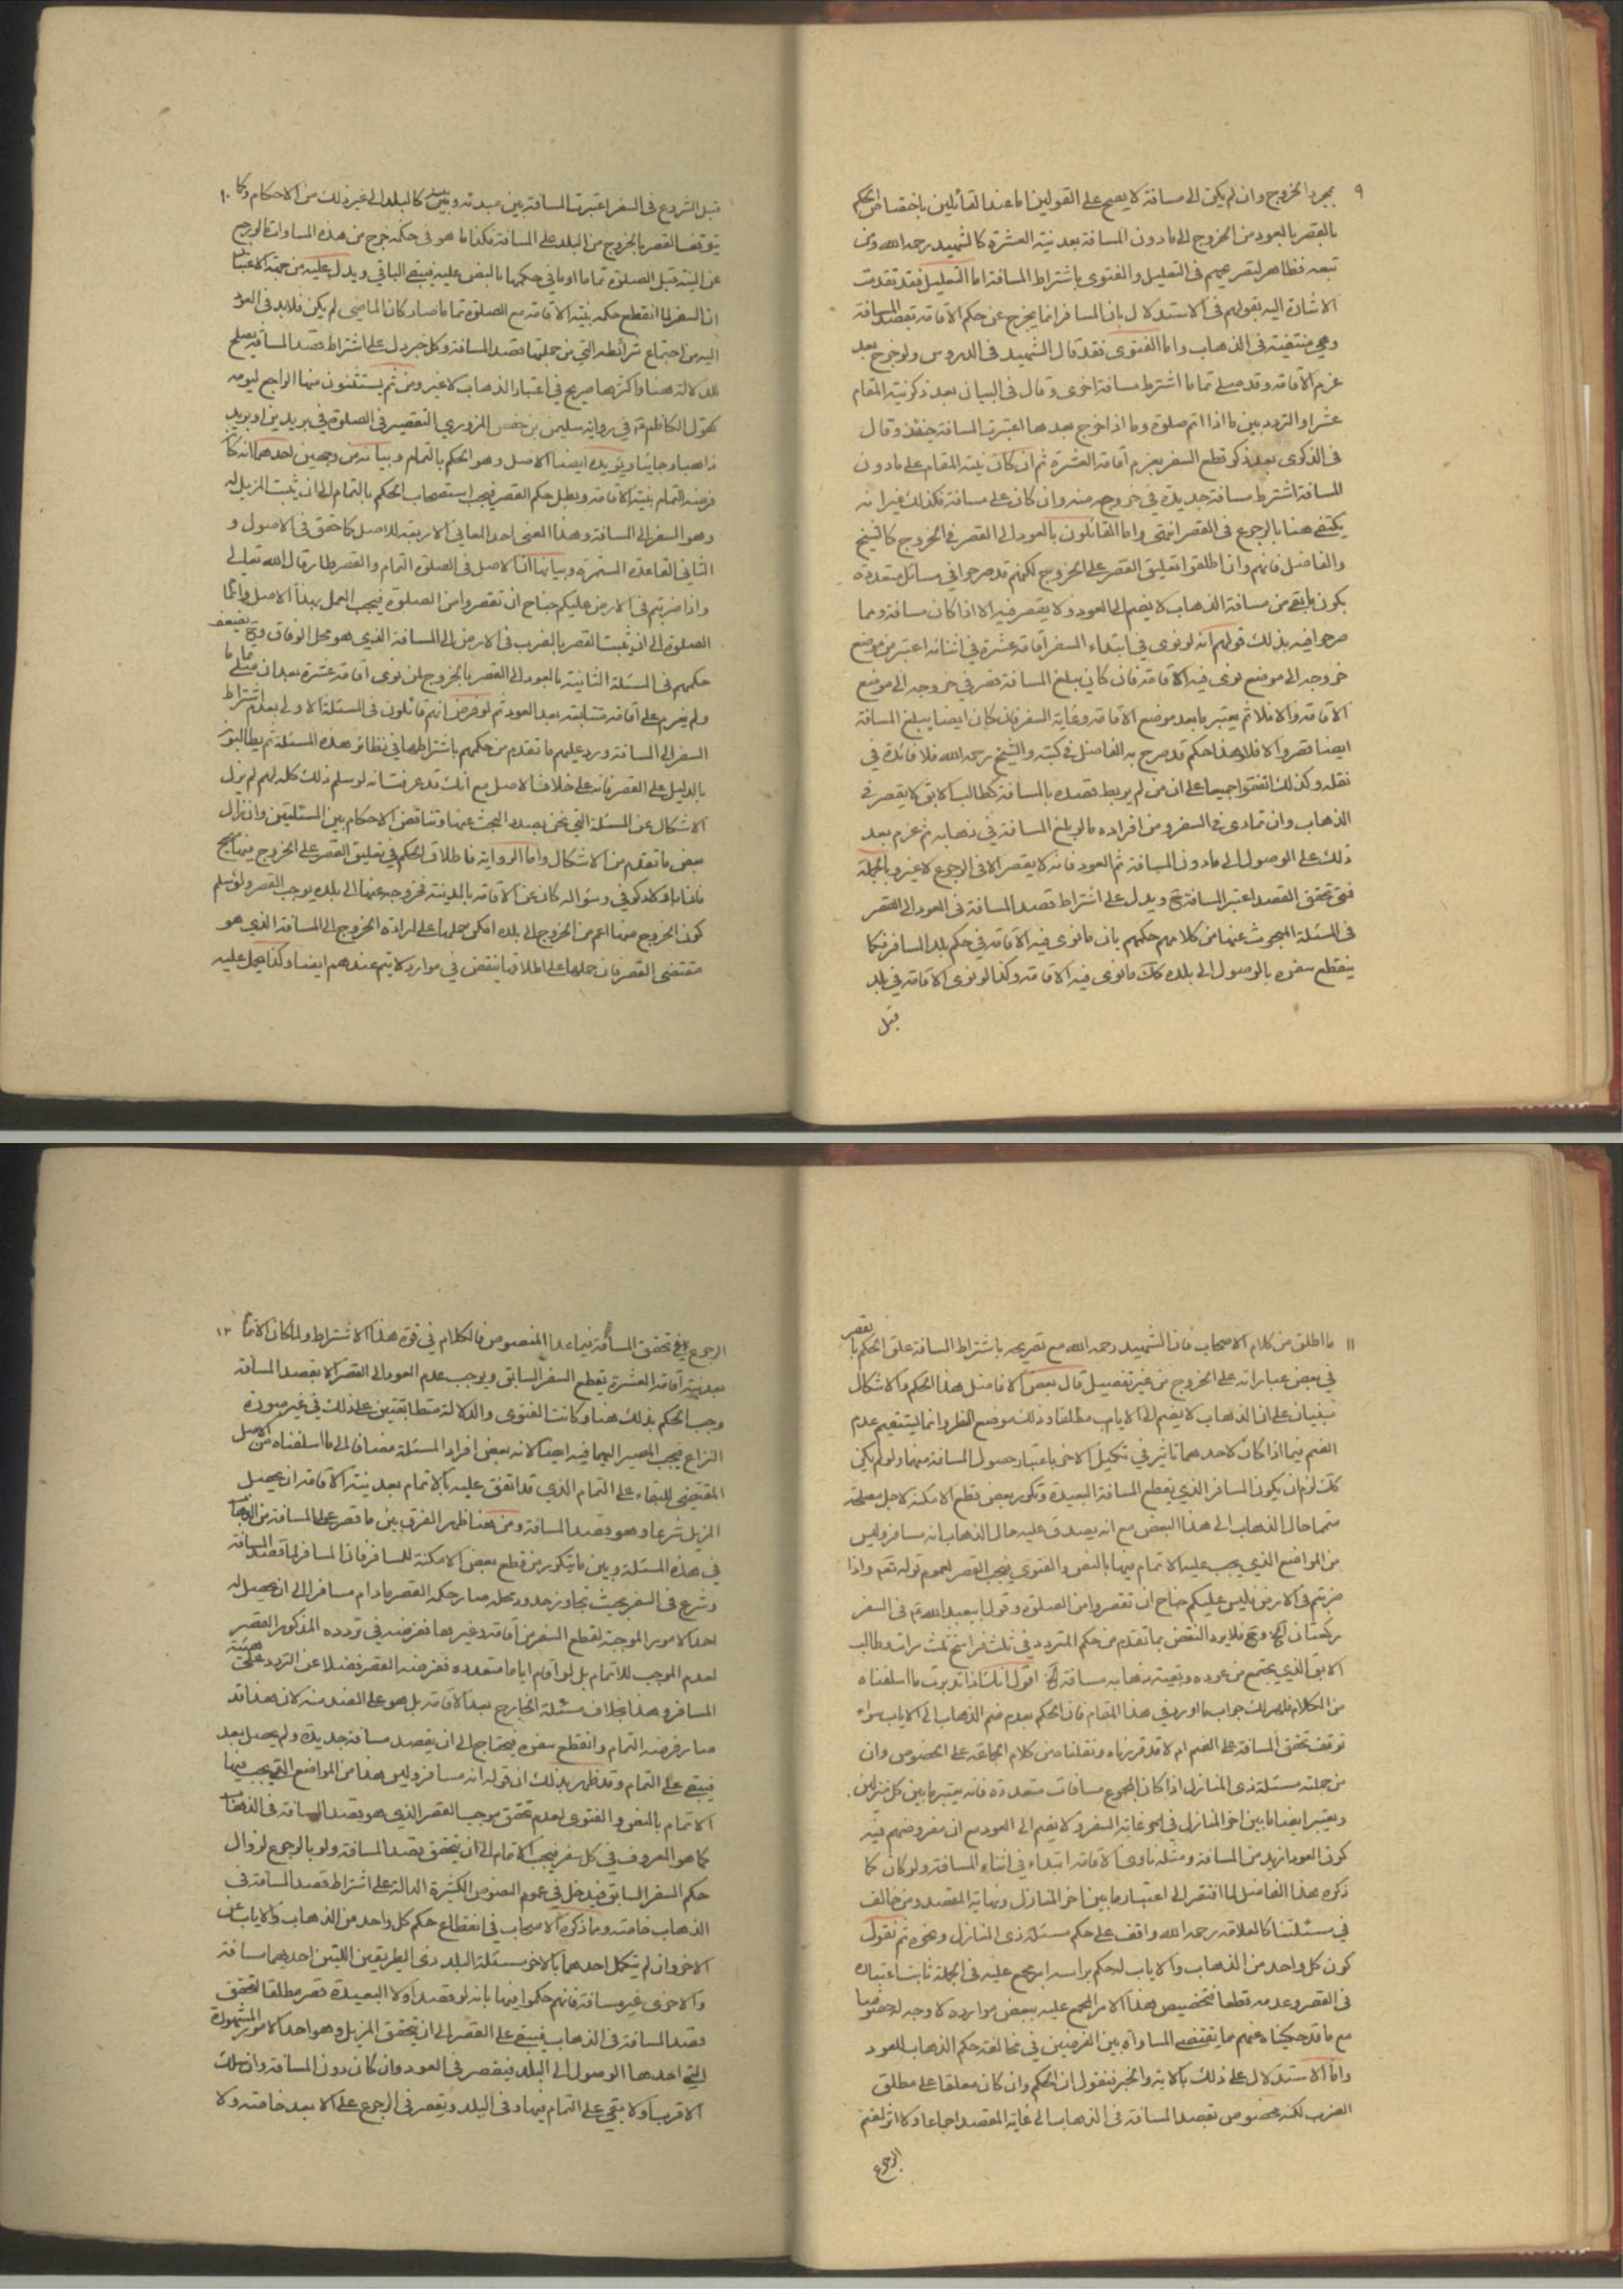 ٩
بمجرد الخروج وان لم يكن الى مسافة لا يصح على القولين اما عند القائلين باختصاص الحكم
بالقصر بالعود من الخروج الى ما دون المسافة بعد نية العشرة كالشهيد رحمه الله ومن
تبعه فظاهر لتصريحهم في التعليل والفتوى باشتراط المسافة اما التعليل فقد تقدمت
الاشارة اليه بقولهم في الاستدلال بان المسافر انما يخرج عن حكم الاقامة بقصد المسافة
وهي منتفية في الذهاب واما الفتوى فقد قال الشهيد في الدروس ولو خرج بعد
عزم الاقامة وقد صلى تماما اشترط مسافة اخرى وقال في البيان بعد ذكر نية المقام
عشرا والتردد بين ما اذا اتم صلوة وما اذا خرج بعدها اعتبرت المسافة حينئذ وقال
في الذكرى بعد ذكر قطع السفر بعزم اقامة العشرة ثم ان كان نية المقام على ما دون
المسافة اشترط مسافة جديدة في خروجه منه وان كان على مسافة فكذلك غير انه
يكتفى هنا بالرجوع في القصر انتهى واما القائلون بالعود الى القصر في الخروج كالشيخ
والفاضل فانهم وان اطلقوا تعليق القصر على الخروج لكنهم قد صرحوا في مسائل متعددة
بكون ما بقى من مسافة الذهاب لا يضم الى العود ولا يقصر فيه الا اذا كان مسافة ومما
صرحوا فيه بذلك قولهم انه لو نوى في ابتداء السفر اقامة عشرة في اثنائه اعتبر من موضع
خروجه الى موضع نوى فيه الاقامة فان كان يبلغ المسافة قصر في خروجه الى موضع
الاقامة والا فلا ثم يعتبر ما بعد موضع الاقامة وغاية السفر فان كان ايضا يبلغ المسافة
ايضا قصر والا فلا وهذا حكم قد صرح به الفاضل في كتبه والشيخ رحمه الله فلا فائدة في
نقله وكذلك اتفقوا جميعا على ان من لم يربط قصده بالمسافة كطالب الابق لا يقصر في
الذهاب وان تمادى في السفر ومن افراده ما لو بلغ المسافة في ذهابه ثم عزم بعد
ذلك على الوصول الى ما دون المسافة ثم العود فانه لا يقصر الا في الرجوع لا غير وبالجملة
فمتى تحقق القصد اعتبر المسافة ح ويدل على اشتراط قصد المسافة في العود الى القصر
في المسئلة المبحوث عنها من كلامهم حكمهم بان ما نوى فيه الاقامة في حكم بلد المسافر فكما
ينقطع سفره بالوصول الى بلده كك ما نوى فيه الاقامة وكذا لو نوى الاقامة في بلد
قبل
١٠
قبل الشروع في السفر اعتبرت المسافة بين مبدئه وبينه كالبلد الى غير ذلك من الاحكام وكما
يتوقف القصر بالخروج من البلد على المسافة فكذا ما هو في حكمه خرج من هذه المساواة ما لو رجع
عن النية قبل الصلوة تماما او ما في حكمها بالنص عليه فيبقى الباقي ويدل عليه من جهة الاعتبار
ان السفر لما انقطع حكمه بنية الاقامة مع الصلوة تماما صار كان الماضي لم يكن فلا بد في العود
اليه من اجتماع شرائطه التي من جملتها قصد المسافة وكل خبر دل على اشتراط قصد المسافة يصلح
للدلالة هنا واكثرها صريح في اعتبار الذهاب لا غير ومن ثم يستثنون منها الراجع ليومه
كقول الكاظم ع في رواية سليمن بن حفص المروزي التقصير في الصلوة في بريدين او بريد
ذاهبا وجائيا ويؤيده ايضا الاصل وهو الحكم بالتمام وبيانه من وجهين احدهما انه كان
فرضه التمام بنية الاقامة وبطل حكم القصر فيجب استصحاب الحكم بالتمام الى ان يثبت المزيل له
وهو السفر الى المسافة وهذا المعنى احد المعاني الاربعة للاصل كما حقق في الاصول و
الثاني القاعدة المستمرة وبيانها ان الاصل في الصلوة التمام والقصر طار قال الله تعالى
واذا ضربتم في الارض فليس عليكم جناح ان تقصروا من الصلوة فيجب العمل بهذا الاصل واتمام
الصلوة الى ان يثبت القصر بالضرب في الارض الى المسافة الذي هو محل الوفاق وح يضعف
حكمهم في المسئلة الثانية بالعود الى القصر بالخروج لمن نوى اقامة عشرة بعد ان صلى تماما
ولم يعزم على اقامة مستانفة بعد العود ثم لو فرض انهم قائلون في المسئلة الاولى بعدم اشتراط
السفر الى المسافة ورد عليهم ما تقدم من حكمهم باشتراطها في نظائر هذه المسئلة ثم يطالبون
بالدليل على القصر فانه على خلاف الاصل مع انك قد عرفت انه لو سلم ذلك كله لهم لم يزل
الاشكال عن المسئلة التي نحن بصدد البحث عنها وتناقض الاحكام بين المسئلتين وان زال
بعض ما تقدم من الاشكال واما الرواية فاطلاق الحكم في تعليق القصر على الخروج فيها
كون الخروج هنا اعم من الخروج الى بلده امكن حملها على ارادة الخروج الى المسافة الذي هو
مقتضى القصر فان حملها على اطلاقها ينتقض في موارد لا يتم عندهم ايضا وكذا يحمل عليه
١١
ما اطلق من كلام الاصحاب فان الشهيد رحمه الله مع تصريحه باشتراط المسافة علق الحكم بالقصر
في بعض عباراته على الخروج من غير تفصيل قال بعض الافاضل هذا الحكم والاشكال
مبنيان على ان الذهاب لا يضم الى الاياب مطلقا وذلك موضع النظر وانما يستقيم عدم
الضم فيما اذا كان لاحدهما تاثير في تكميل الاخر باعتبار حصول المسافة منهما ولو لم يكن
كك لزم ان يكون المسافر الذي يقطع المسافة البعيدة وتكرر بعض قطع الامكنة لاجل مصلحة
متما حال الذهاب الى هذا البعض مع انه يصدق عليه حال الذهاب انه مسافر وليس
من المواضع الذي يجب عليه الاتمام فيها بالنص والفتوى فيجب القصر لعموم قوله تعم واذا
ضربتم في الارض فليس عليكم جناح ان تقصروا من الصلوة وقول ابيعبد الله ع في السفر
ركعتان الخ وح فلا يرد النقض بما تقدم من حكم المتردد في ثلث فراسخ ثلث مرات وطالب
الابق الذي يجتمع من عوده وبقية ذهابه مسافة الخ اقول انك اذا تدبرت ما اسلفناه
من الكلام ظهر لك جواب ما اورد في هذا المقام فان الحكم بعدم ضم الذهاب الى الاياب سواء
توقف تحقق المسافة على الضم ام لا قد قررناه ونقلناه من كلام الجماعة على الخصوص وان
من جملته مسئلة ذي المنازل اذا كان المجموع مسافات متعددة فانه يعتبر ما بين كل منزلين
ويعتبر ايضا ما بين اخر المنازل في غاية السفر ولا يضم الى العود مع ان مفروضهم فيه
كون العود ازيد من المسافة ومثله ناوى الاقامة ابتداء في اثناء المسافة ولو كان كما
ذكره هذا الفاضل لما افتقر الى اعتبار ما بين اخر المنازل ونهاية المقصد ومن خالف
في مسئلتنا كالعلامة رحمه الله واقف على حكم مسئلة ذي المنازل ونحوه ثم نقول
كون كل واحد من الذهاب والاياب له حكم براسه امر مجمع عليه في الجملة ثابتا اعتباره
في القصر وعدمه قطعا فتخصيص هذا الامر المجمع عليه ببعض موارده لا وجه له خصوصا
مع ما قد حكيناه عنهم مما يقتضي المساواة بين الفرضين في مخالفة حكم الذهاب للعود
واما الاستدلال على ذلك بالاية والخبر فنقول ان الحكم وان كان معلقا على مطلق
الضرب لكنه مخصوص بقصد المسافة في الذهاب الى غاية المقصد اجماعا ولا اثر لضم
الرجوع
١٢
الرجوع في تحقق المسافة فيما عدا المنصوص فالكلام في قوة هذا الاشتراط ولما كان الاتمام
بعد نية اقامة العشرة يقطع السفر السابق ويوجب عدم العود الى القصر الا بقصد المسافة
وجب الحكم بذلك هنا وكانت الفتوى والدلالة متطابقتين على ذلك في غير صورة
النزاع فيجب المصير اليهما فيه ايضا لانه بعض افراد المسئلة مضافا الى ما اسلفناه من الاصل
المقتضى للبقاء على التمام الذي قد اتفق عليه بالاتمام بعد نية الاقامة ان يحصل
المزيل شرعا وهو قصد المسافة ومن هنا ظهر الفرق بين ما قصر على المسافة من الذهاب
في هذه المسئلة وبين ما يتكرر من قطع بعض الامكنة للمسافر فان المسافر لما قصد المسافة
وشرع في السفر بحيث تجاوز حدود محله صار حكمه القصر ما دام مسافرا الى ان يحصل له
احد الامور الموجبة لقطع السفر من اقامة وغيرها ففرضه في تردده المذكور القصر
لعدم الموجب للاتمام بل لو اقام اياما متعددة ففرضه القصر فضلا عن التردد على هيئة
المسافر وهذا بخلاف مسئلة الخارج بعد الاقامة بل هو على الضد منه لان هذا قد
صار فرضه التمام وانقطع سفره فيحتاج الى ان يقصد مسافة جديدة ولم يحصل بعد
فيبقى على التمام وقد ظهر بذلك ان قوله انه مسافر وليس هذا من المواضع التي يجب فيها
الاتمام بالنص والفتوى لعدم تحقق موجب القصر الذي هو قصد المسافة في الذهاب
كما هو المعروف في كل سفر فيجب الاتمام الى ان يتحقق قصد المسافة ولو بالرجوع لزوال
حكم السفر السابق فيدخل في عموم النصوص الكثيرة الدالة على اشتراط قصد المسافة في
الذهاب خاصة وما ذكره الاصحاب في انقطاع حكم كل واحد من الذهاب والاياب عن
الاخر وان لم يتكمل احدهما بالاخر مسئلة البلد ذي الطريقين اللتين احدهما مسافة
والاخرى غير مسافة فانهم حكموا فيها بانه لو قصد اولا البعيدة قصر مطلقا لتحقق
قصد المسافة في الذهاب فيبقى على القصر الى ان يتحقق المزيل وهو احد الامور المشهورة
التي احدها الوصول الى البلد فيقصر في العود وان كان دون المسافة وان سلك
الاقرب اولا بقي على التمام فيها وفي البلد ويقصر في الرجوع على الابعد خاصة ولا